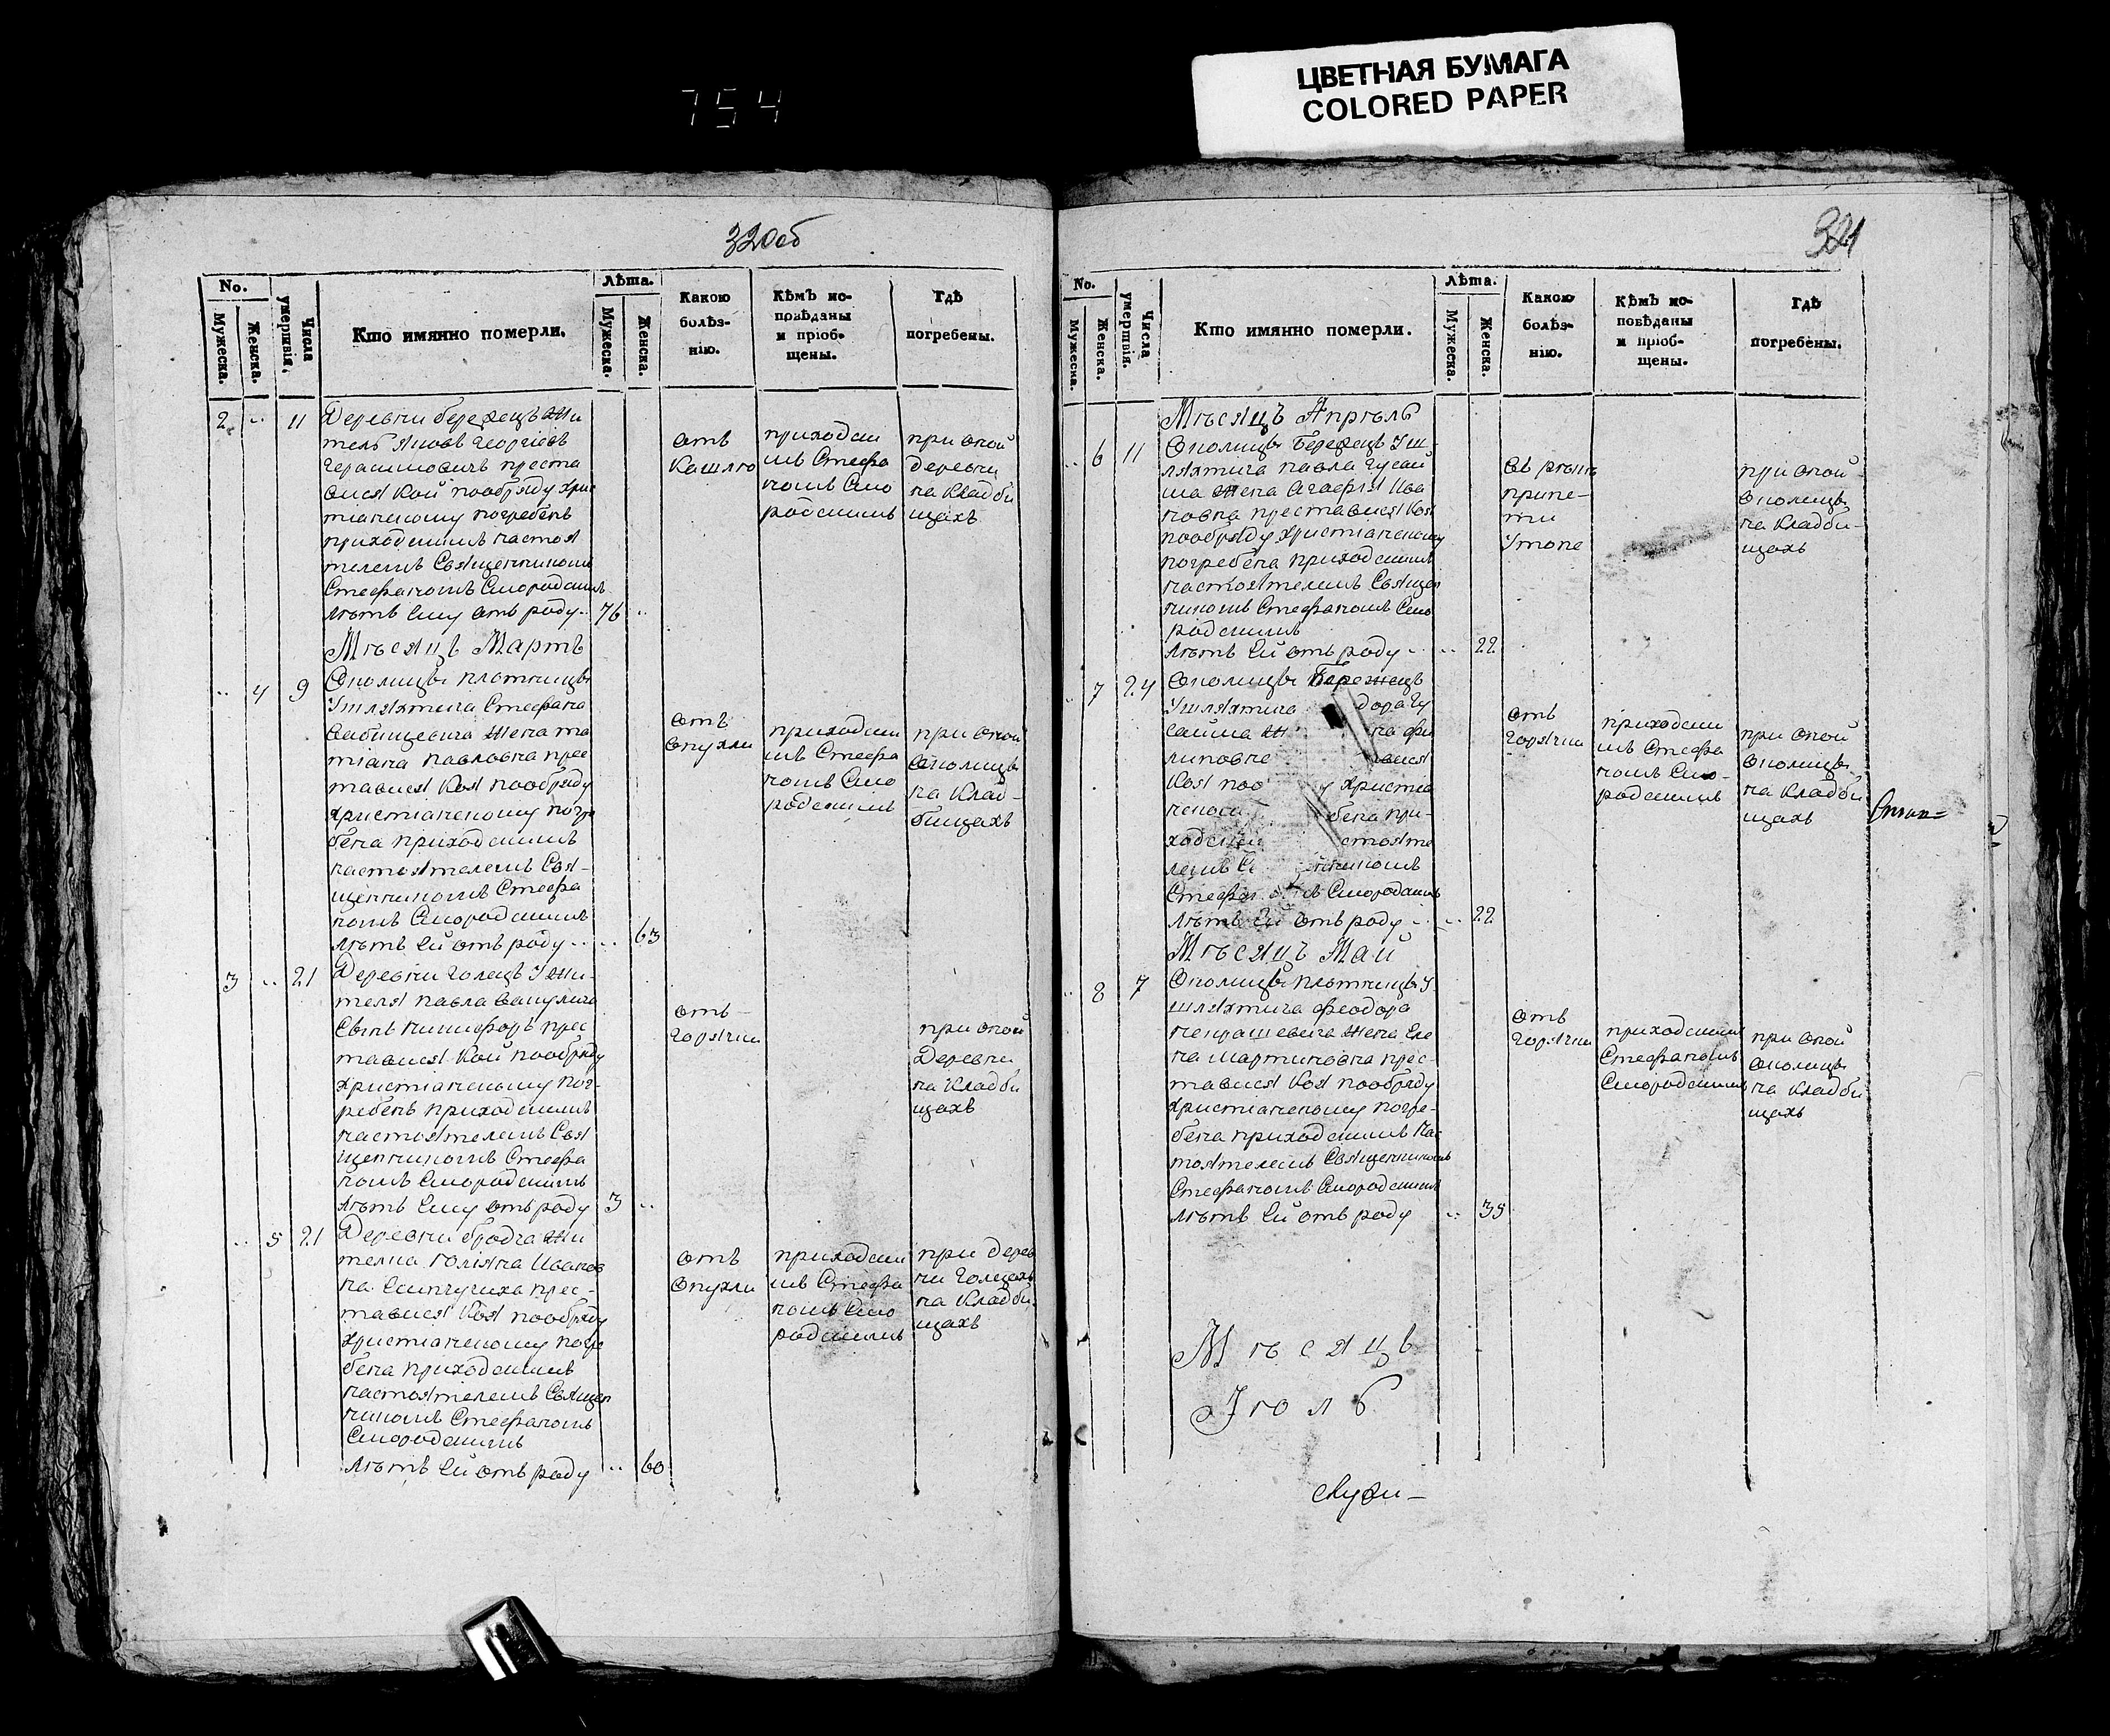 754
ЦВЕТНАЯ БУМАГА
COLORED PAPER
320об
No.
Мужеска.
Женска.
Числа умертвія.
Кто имянно померли.
Лѣта.
Мужеска.
Женска.
Какою болѣз-
нію.
Кѣмъ ис-
повѣданы
и пріоб-
щены.
Гдѣ
погребены.
2 .. 11
Деревни бережецъ жи
тель Яковъ Георгіевъ
Герасимовичъ преста
вися кой пообряду хрис
тіанскому погребенъ
приходскимъ настоя
телемъ Священникомъ
Стефаномъ Смородскимъ
лѣтъ ему отъ роду .. 76 ..
отъ
Кашлю
приходски
мъ Стефа
номъ Смо
родскимъ
при оной
деревни
на кладби
щахъ
Мѣсяцъ Мартъ
.. 4 9
Околицы плотницы
Ушляхтича Стефана
жена та
тіана Павловна прес
тавися Коя пообряду
христіанскому погре
бена приходскимъ
настоятелемъ Свя-
щенникомъ Стефа
номъ Смородскимъ
лѣтъ Ей отъ роду .. .. 63
отъ
опухли
приходски
мъ Стефа
номъ Смо
родскимъ
при оной
Околицы
на клад-
бищахъ
3 .. 21
Деревни Голецъ Ужи-
теля Павла
Сынъ Никифоръ прес
тавися Кой пообряду
христіанскому пог-
ребенъ приходскимъ
настоятелемъ Свя
щенникомъ Стефа
номъ Смородскимъ
лѣтъ Ему отъ роду 3 ..
отъ
горячки
при оной
Деревни
на кладби
щахъ
.. 5 21
Деревни бродча жи
телка Юліяна Иванов
на прес-
тавися Коя пообряду
христіанскому погре
бена приходскимъ
настоятелемъ Священ
никомъ Стефаномъ
Смородскимъ
лѣтъ Ей отъ роду .. 60
отъ
Опухли
приходски
мъ Стефа
номъ Смо
родскимъ
при дерев
ни Голецахъ
на кладби
щахъ
321
No.
Мужеска.
Женска.
Числа умертвія.
Кто имянно померли.
Лѣта.
Мужеска.
Женска.
Какою
болѣз-
нію.
Кѣмъ ис-
повѣданы
и пріоб-
щены.
Гдѣ
погребены.
Мѣсяцъ Апрѣль
.. 6 11
Околицы Бережецъ Уш-
ляхтича Павла Гусай
ма жена Агафія Ива
новна преставися Коя
пообряду христіанскому
погребена приходскимъ
настоятелемъ Священ
никомъ Стефаномъ Смо
родскимъ
лѣтъ Ей отъ роду .. .. 22
Въ рѣцѣ
Припе-
ти
Утопе
при оной
Околицы
на кладби-
щахъ
.. 7 24
Околицы Бережецъ
Ушляхтича дора Гу
сайма ж на фи
липовне вися
Коя поо у христіа
бена при-
стояте
никомъ
Стефа мъ Смородскимъ
лѣтъ Ей отъ роду .. .. 22
отъ
горячки
приходски
мъ Стефа
номъ Смо-
родскимъ
при оной
Околицы
на кладби
щахъ
Мѣсяцъ Май
.. 8 7
Околицы плотницы У
шляхтича Феодора
жена Еле
на Мартиновна прес-
тавися Коя пообряду
христіанскому погре-
бена приходскимъ нас
тоятелемъ Священникомъ
Стефаномъ Смородскимъ
лѣтъ Ей отъ роду .. 35
отъ
горячки
приходскимъ
Стефаномъ
Смородскимъ
при оной
Околицы
на кладби
щахъ
Мѣсяцъ
Іюль